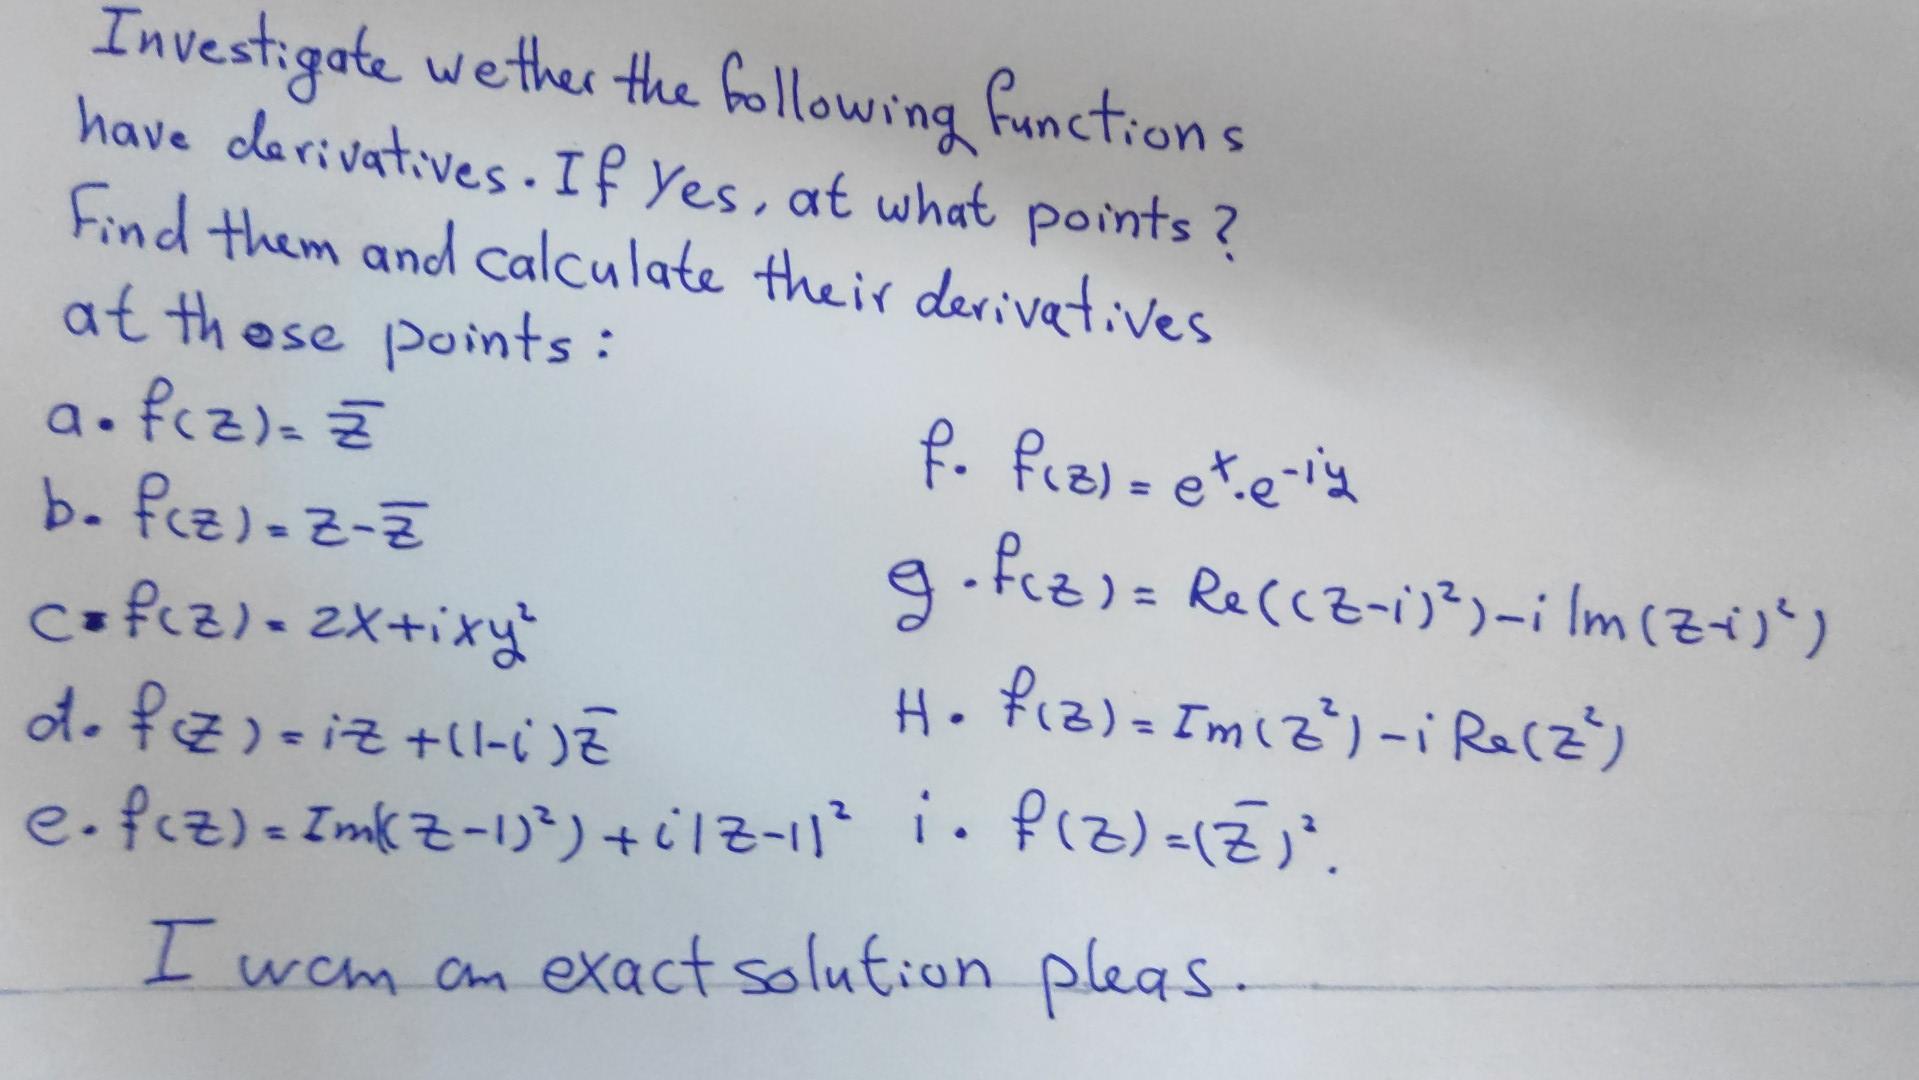 Investigate wether the following functions
have derivatives. If Yes, at what points?
Find them and calculate their derivatives
at those points:
a. f(z)= z̅
b. f(z)= z-z̅
c. f(z)= 2x+ixy²
d. f(z)=iz+(1-i)z̅
e. f(z)=Im((z-1)²)+i|z-1|²
f. f(z)=eˣ.e⁻ⁱʸ
g. f(z)= Re((z-i)²)-i Im(z-i)²)
H. f(z)=Im(z²)-i Re(z²)
i. f(z)=(z̅)².
I wan an exact solution pleas.